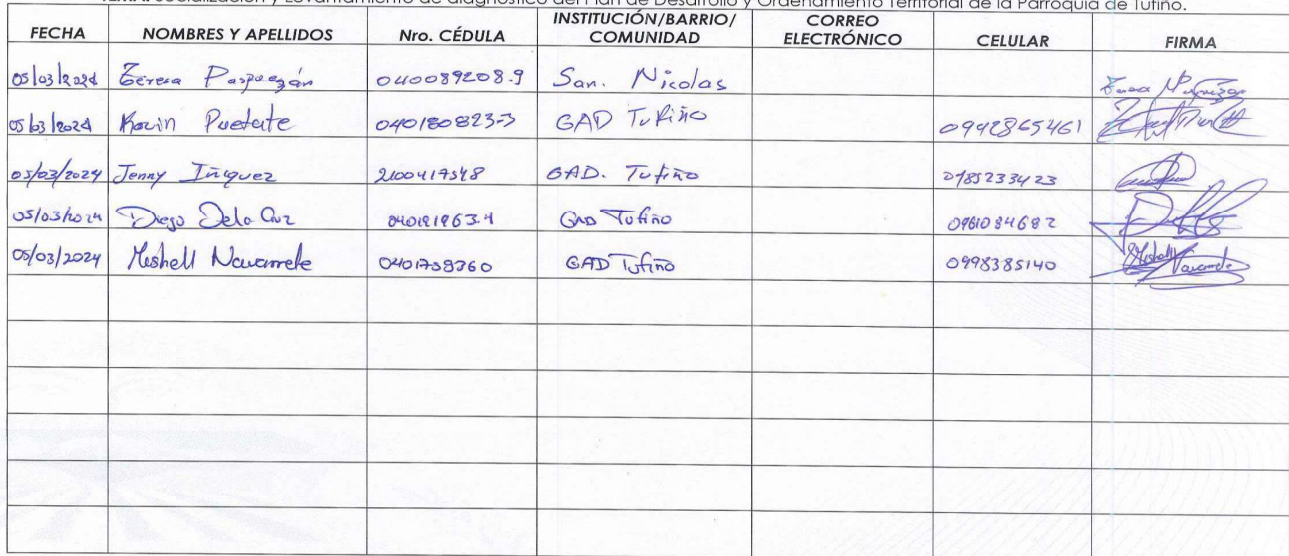 TEMA: Socialización y Levantamiento de diagnóstico del Plan de Desarrollo y Ordenamiento Territorial de la Parroquia de Tufiño.
FECHA NOMBRES Y APELLIDOS Nro. CÉDULA INSTITUCIÓN/BARRIO/COMUNIDAD CORREO ELECTRÓNICO CELULAR FIRMA
05/03/2024 Teresa Paspuezán 040089208-9 San. Nicolas
05/03/2024 Kevin Puetate 040180823-3 GAD Tufiño 0992865461
05/03/2024 Jenny Iñiguez 2100417548 GAD. Tufiño 0785233423
05/03/2024 Diego Dela Cruz GAD Tufiño 0961084682
05/03/2024 Meshell Navarrete 0401758360 GAD Tufiño 0998385140